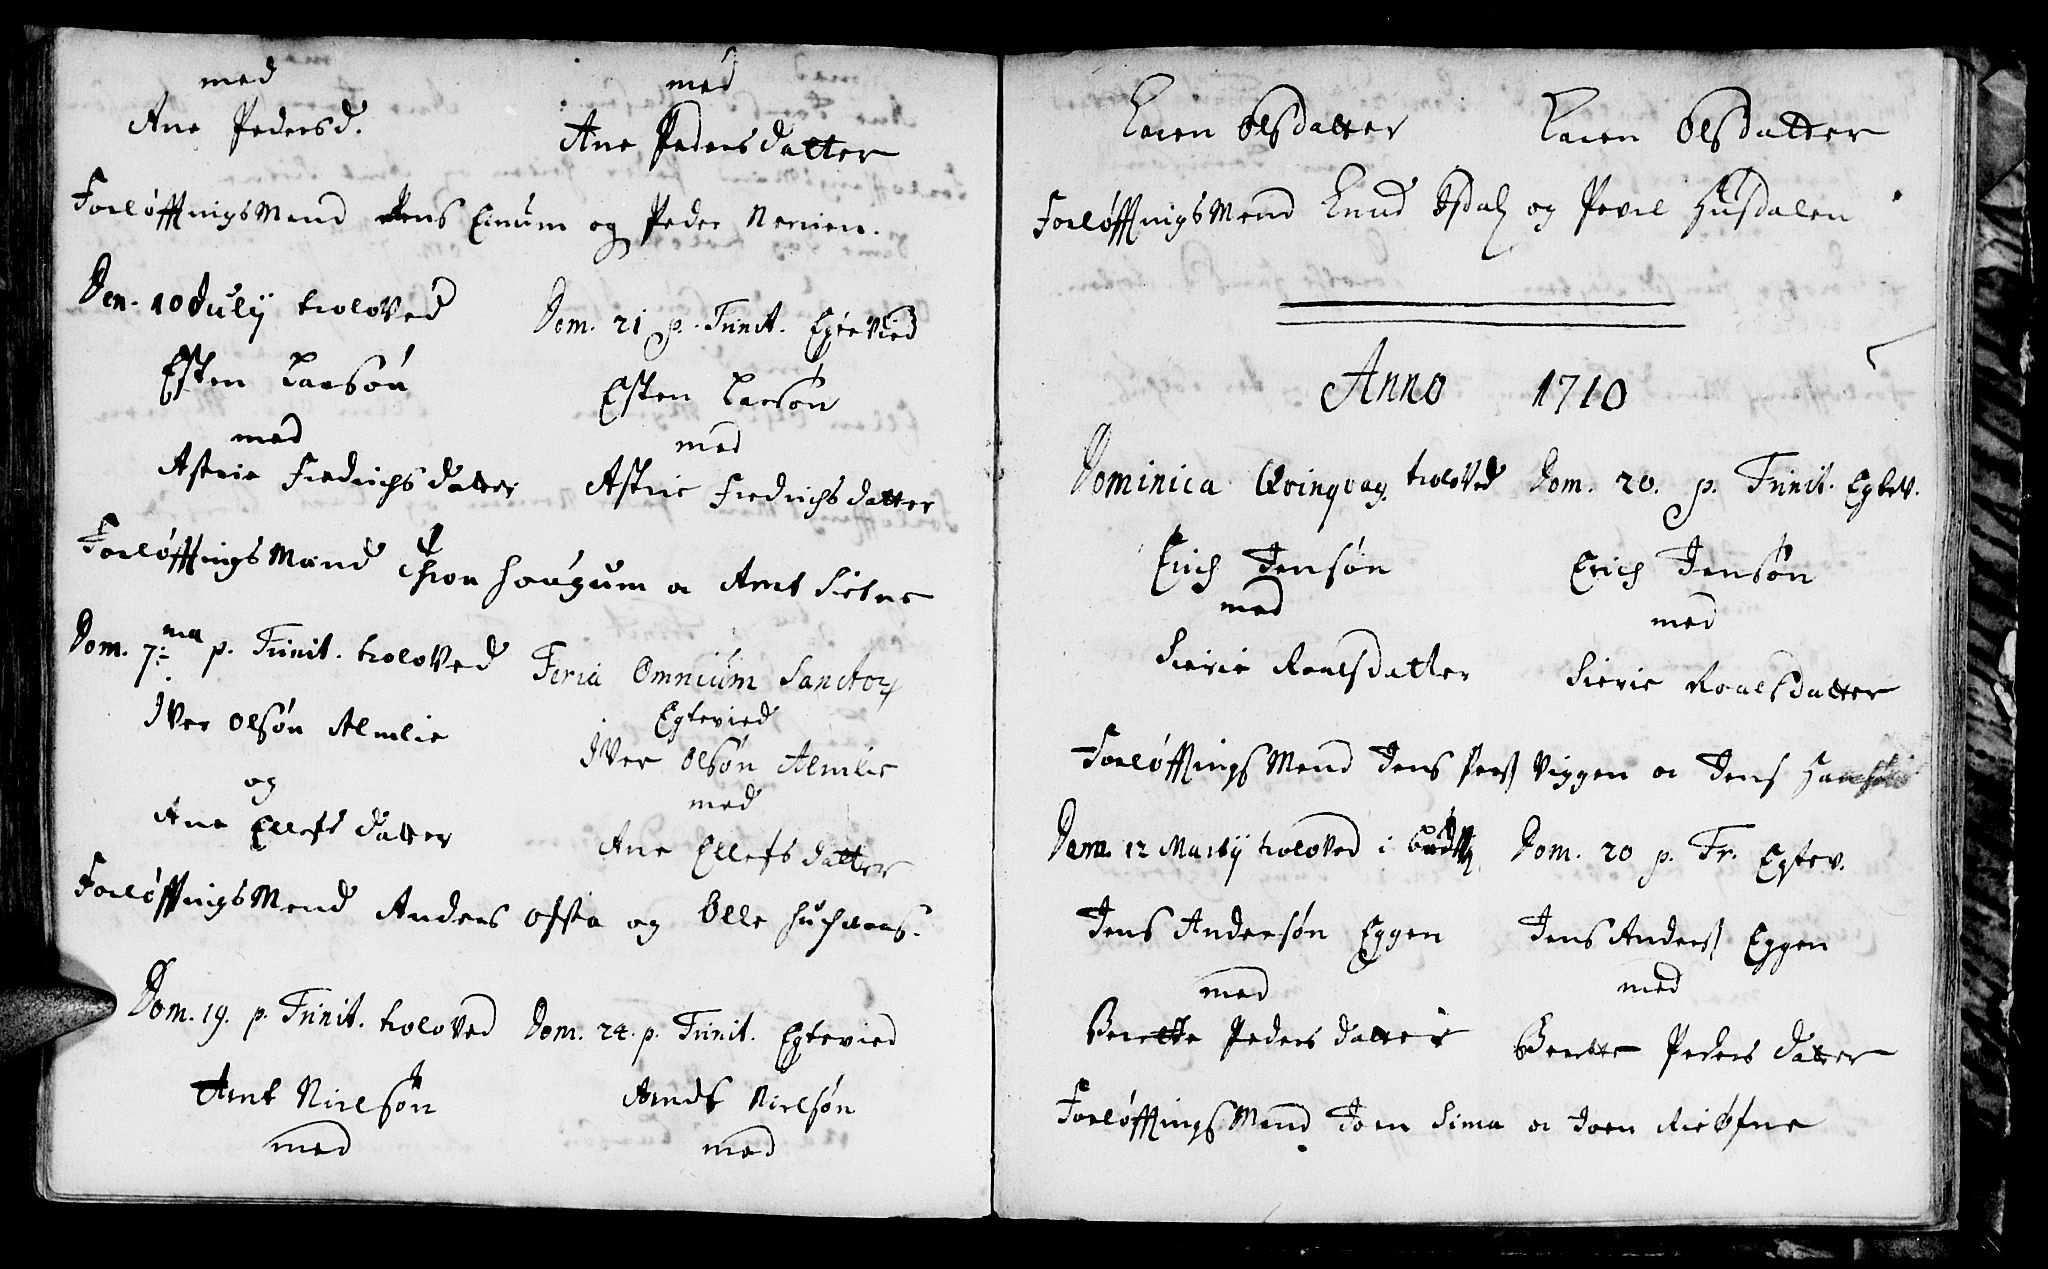 med
Ane Pedersd.
med
Ane Pedersdatter
Forløfftnings Mend Jens Einum og Peder Nervien.
Den 10 July troloved
Esten Larsøn
med
Astrie Fredrichsdatter
Dom. 21 p. Trinit. Egtevied
Esten Larsøn
med
Astrie Fredrichsdatter
Forløfftnings Mend Thron Hougum o Arnt Sietne
Dom. 7:ma p. Trinit. troloved
Iver Olsøn Almlie
og
Ane Ellefsdatter
Feria Omnium Sanctor
Egtevied
Iver Olsøn Almlie
med
Ane Ellefsdatter
Forløfftnings Mend Anders Ofsta og Olle
Dom. 19. p. Trinit. troloved
Arnt Nielsøn
med
Dom. 24. p. Trinit. Egtevied
Arndt Nielsøn
med
Karen Olsdatter
Karen Olsdatter
Forløfftnings Mend Knud og Povel Husdalen
Anno 1710
Dominica Qvinqvag. troloved
Erich Jensøn
med
Sierie Roalsdatter
Dom. 20. p. Trinit. Egtev.
Erich Jensøn
med
Sierie Roalsdatter
Forløfftnings Mend Jens Pers Viggen o Jens
12 Martij troloved i
Jens Andersøn Eggen
med
Berette Pedersdatter
Dom. 20 p. Tr. Egtev.
Jens Anders Eggen
med
Berette Pedersdatter
Forløfftnings Mend Joen Lima o Joen